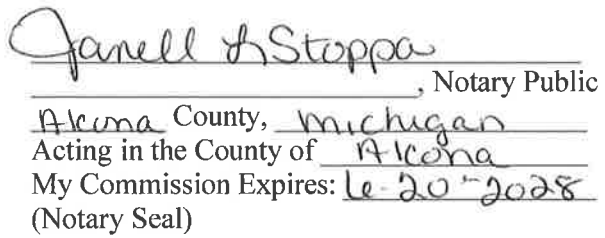 Janell L Stoppa
, Notary Public
Alcona County, Michigan
Acting in the County of Alcona
My Commission Expires: 6-20-2028
(Notary Seal)